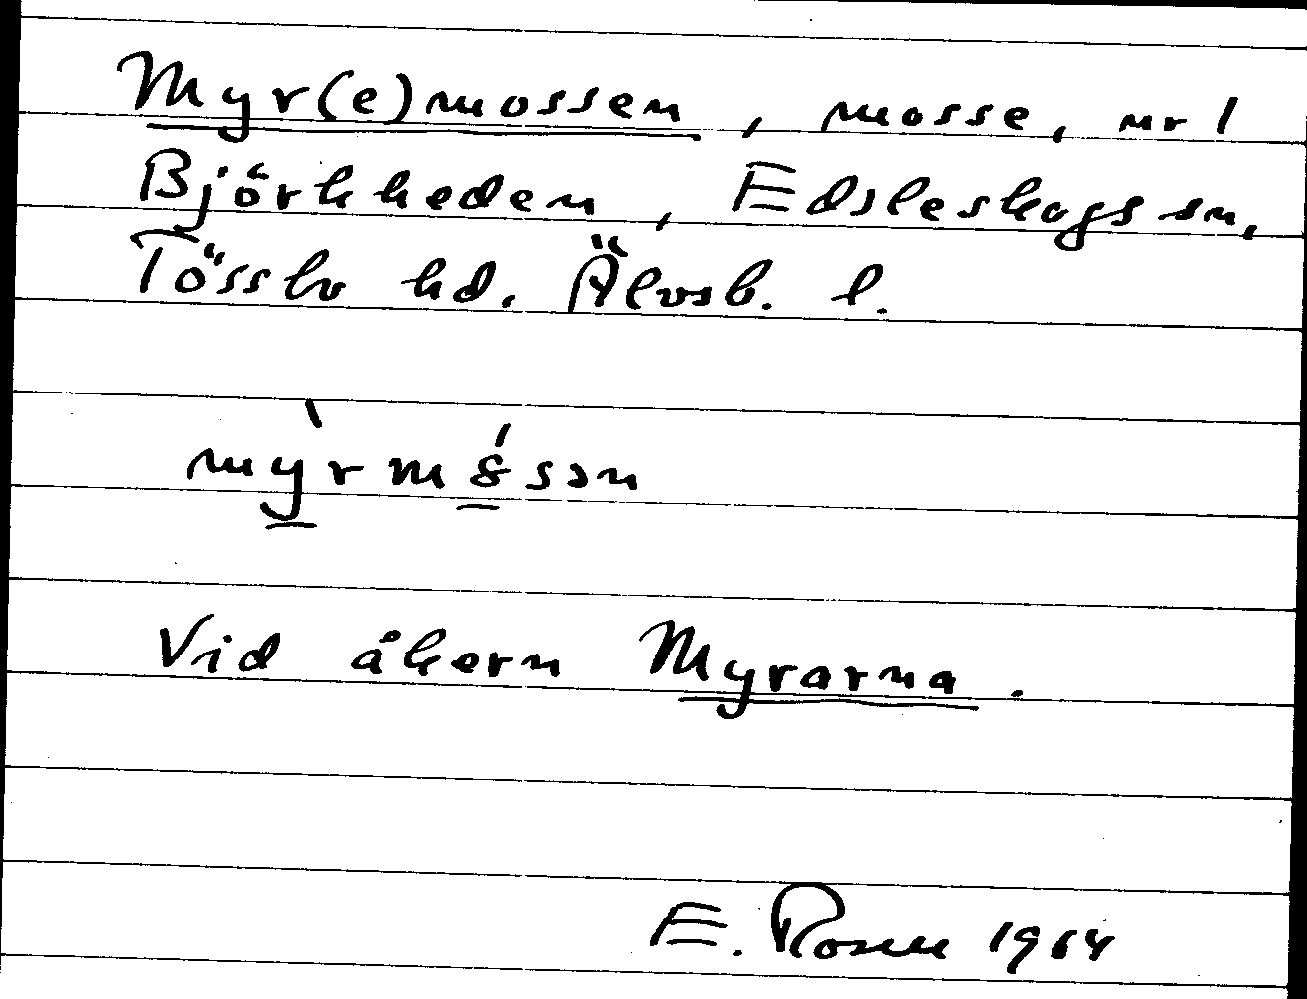 Myr(e)mossen, mosse, nr 1
Björkheden, Edsleskogs sn,
Tössbo hd. Älvsb. l.
mỳrmósən
Vid åkern Myrarna.
E. Rosell 1964